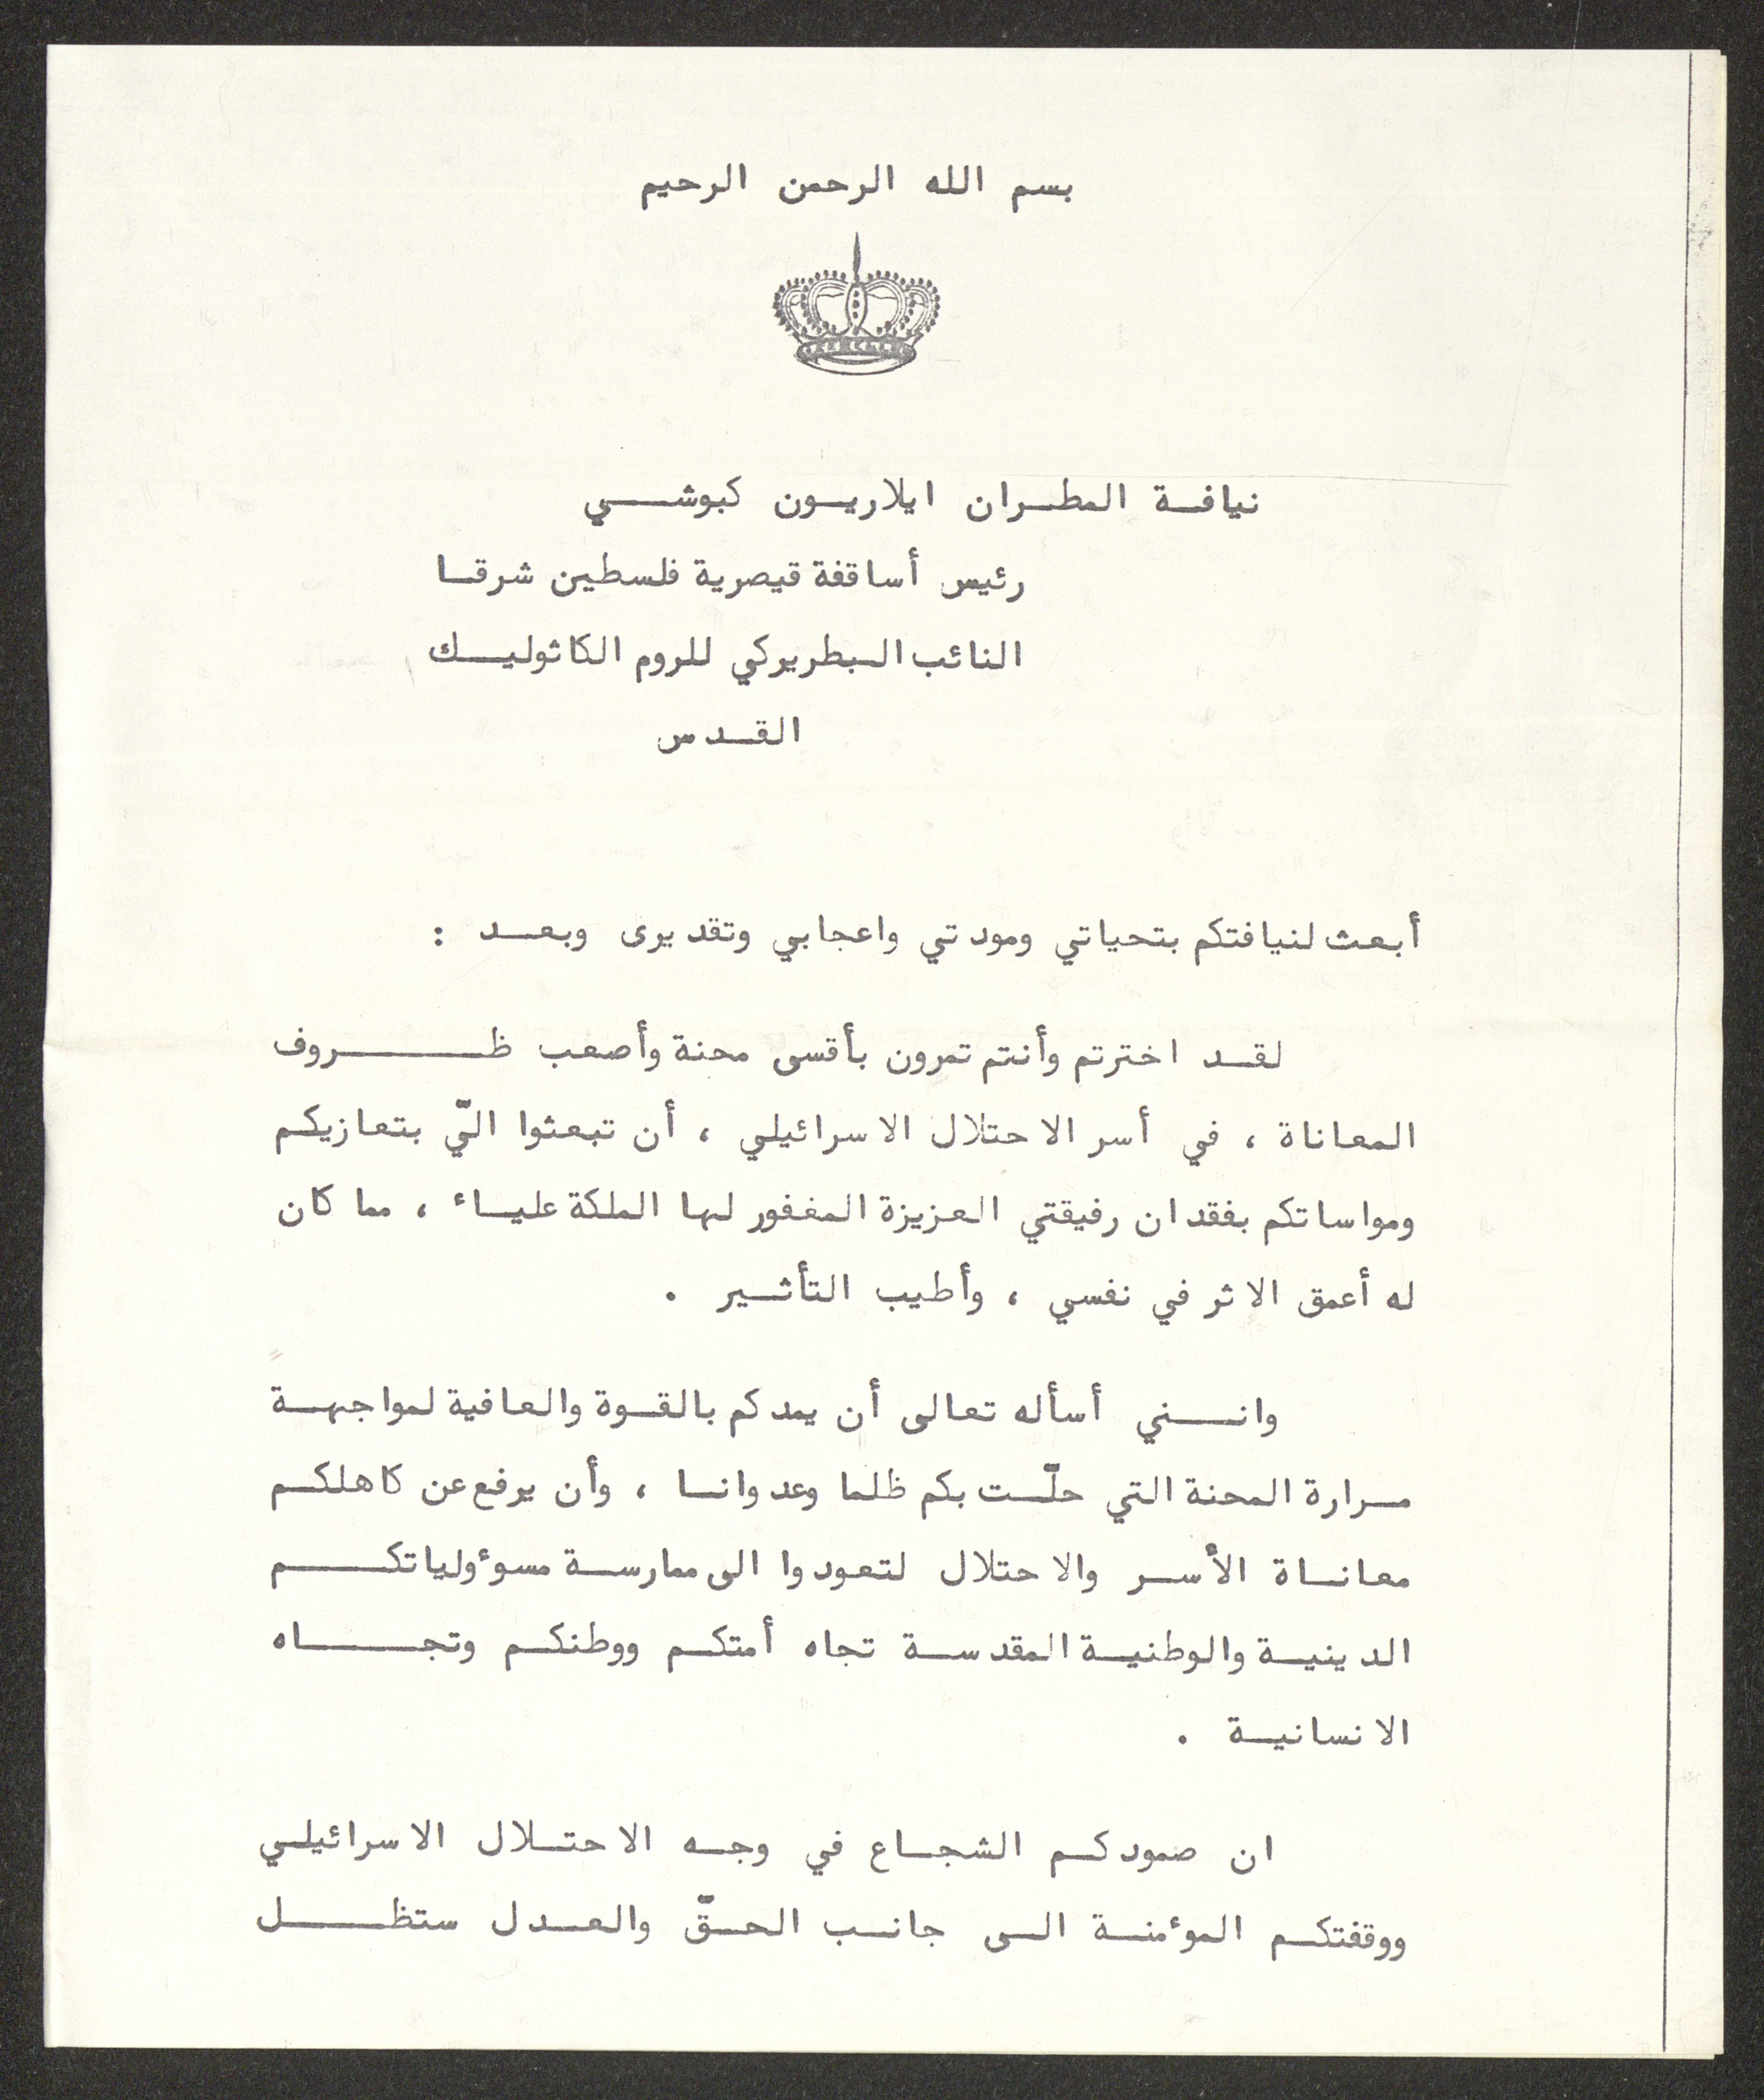 بسم الله الرحمن الرحيم
نيافة المطران ايلاريون كبوشي
رئيس أساقفة قيصرية فلسطين شرقا
النائب البطريركي للروم الكاثوليك
القدس
أبعث لنيافتكم بتحياتي ومودتي واعجابي وتقديرى وبعد :
لقد اخترتم وأنتم تمرون بأقسى محنة وأصعب ظروف
المعاناة ، في أسر الاحتلال الاسرائيلي ، أن تبعثوا اليّ بتعازيكم
ومواساتكم بفقدان رفيقتي العزيزة المغفور لها الملكة علياء ، مما كان
له أعمق الاثر في نفسي ، وأطيب التأثير .
وانني أسأله تعالى أن يمدكم بالقوة والعافية لمواجهة
مرارة المحنة التي حلّت بكم ظلما وعدوانا ، وأن يرفع عن كاهلكم
معاناة الأسر والاحتلال لتعودوا الى ممارسة مسوءولياتكم
الدينية والوطنية المقدسة تجاه أمتكم ووطنكم وتجاه
الانسانية .
ان صمودكم الشجاع في وجه الاحتلال الاسرائيلي
ووقفتكم الموءمنة الى جانب الحقّ والعدل ستظل